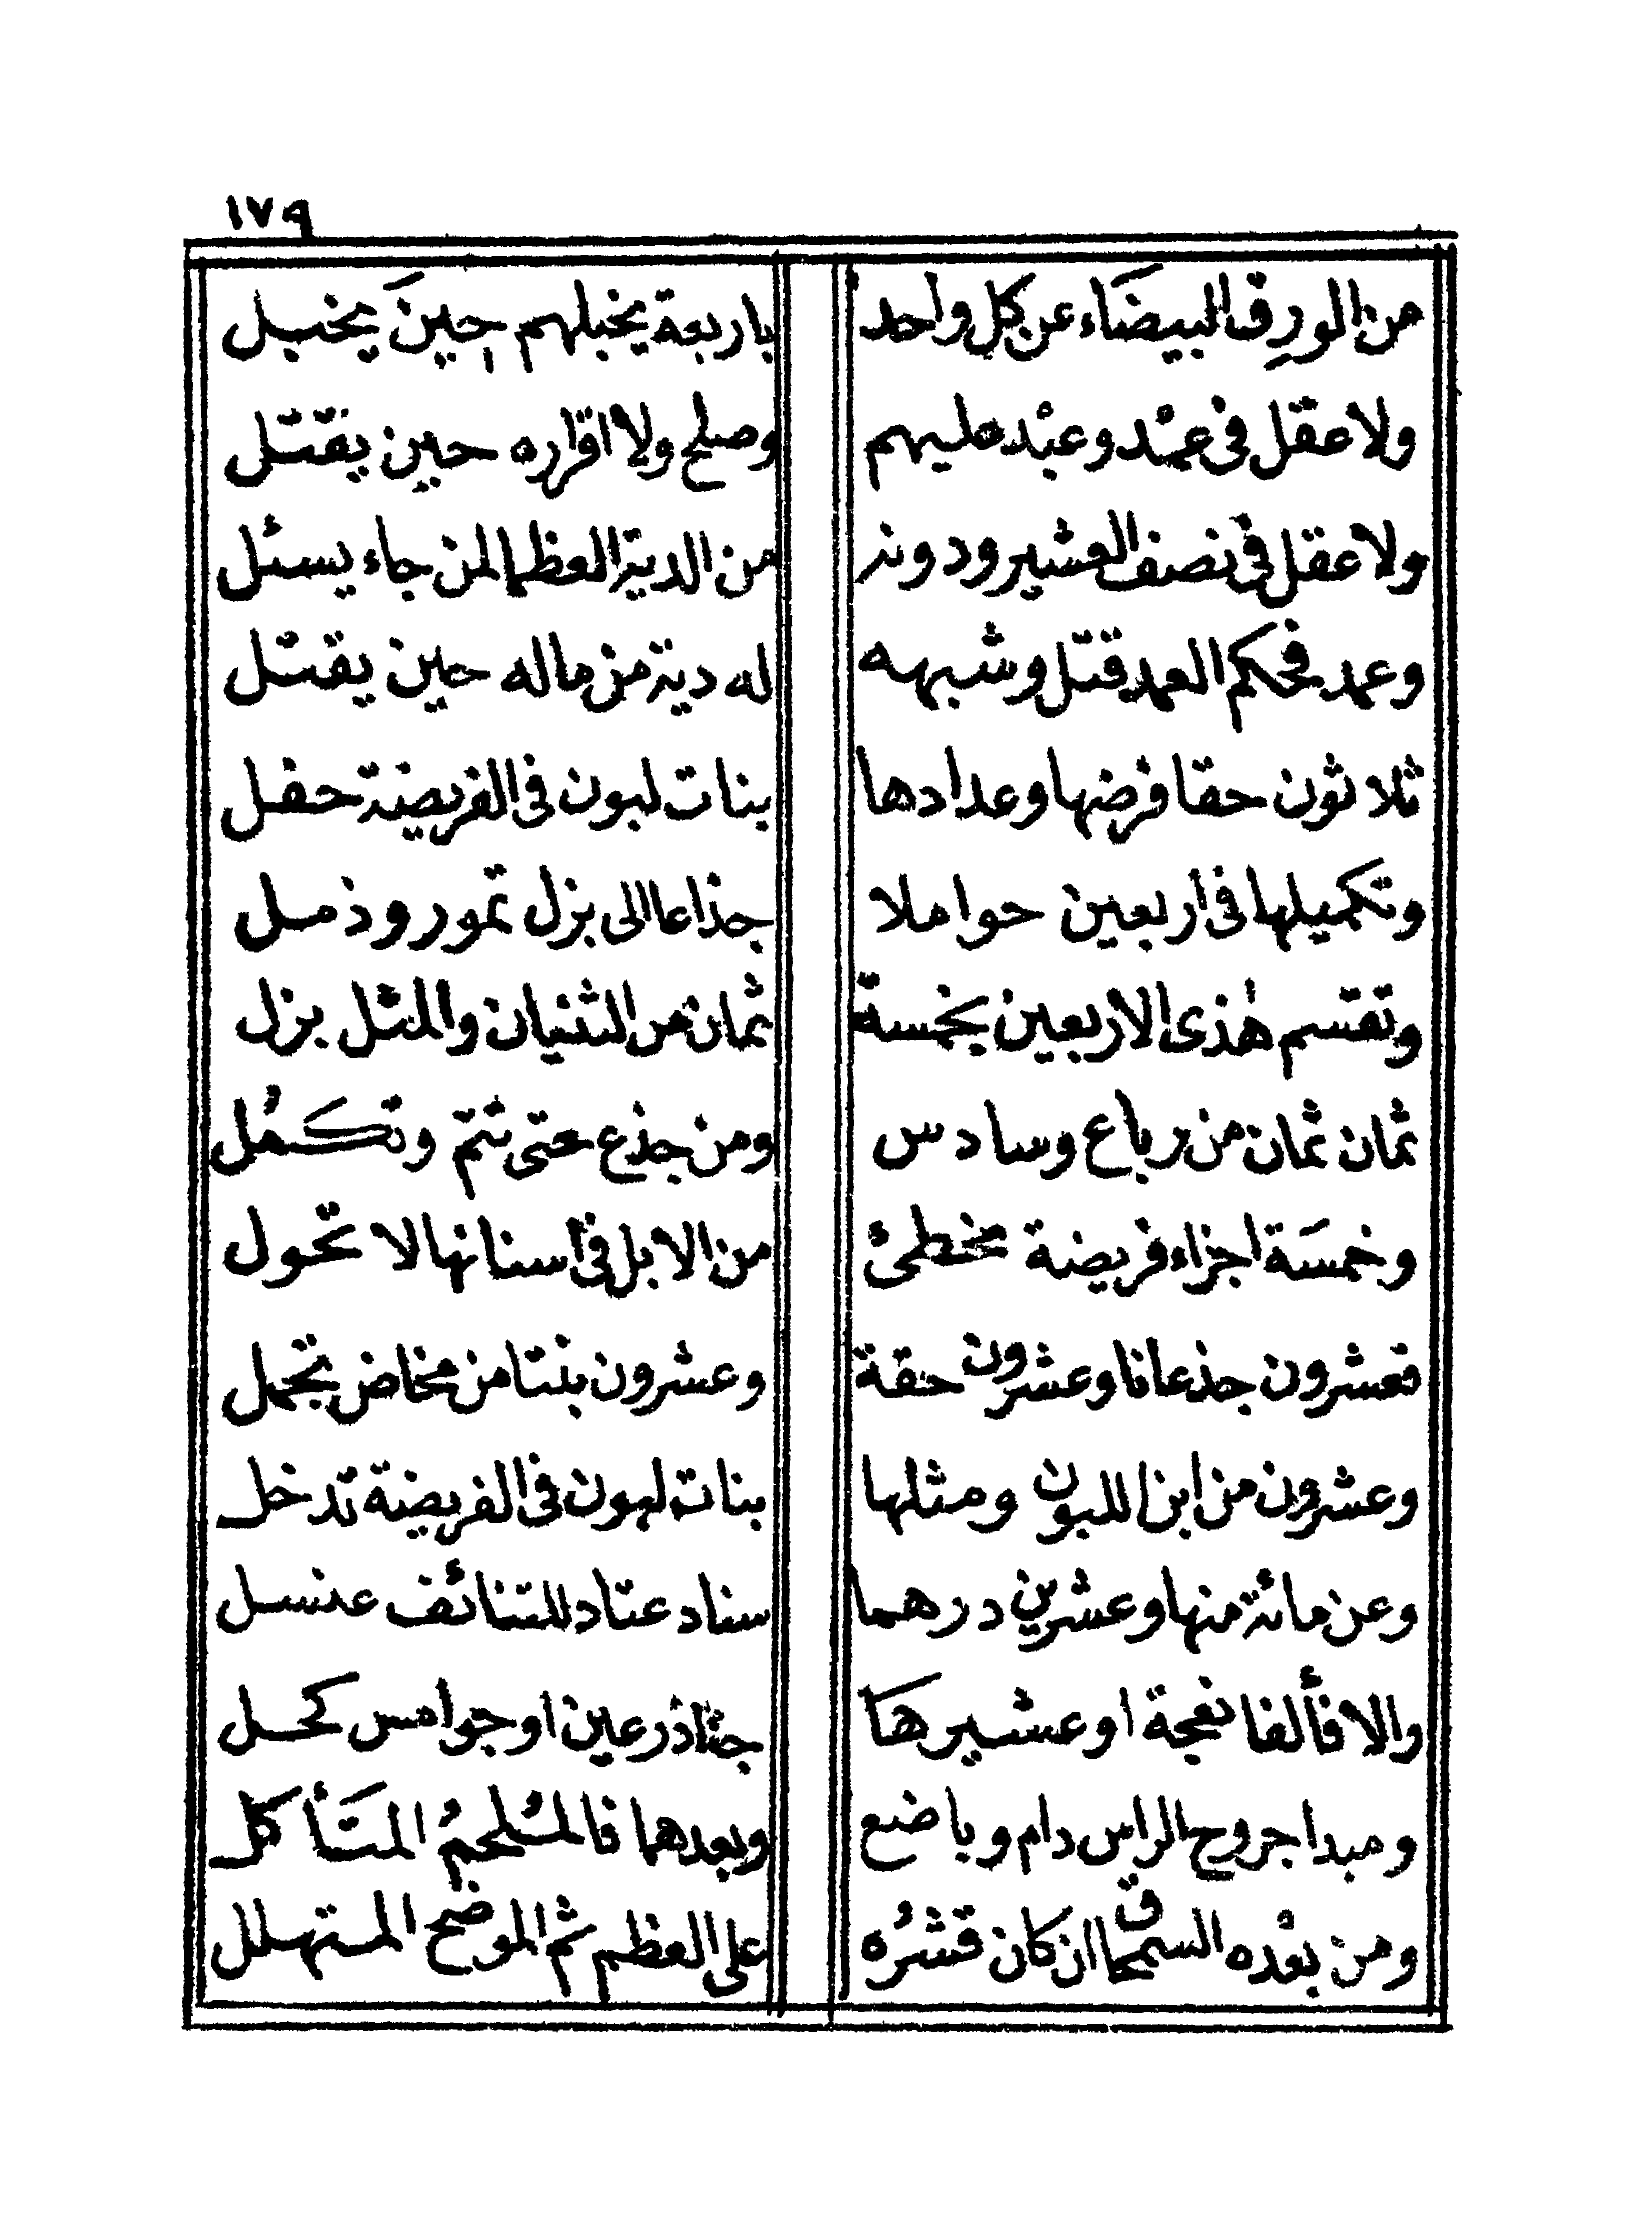 ١٧٩
من الورق البيضاء عن كل واحد باربعة يخبلهم حين يخبل
ولا عقل في عمد وعبد عليهم وصلح ولا اقراره حين يقتل
ولا عقل في نصف العشير ودونه من الدية العظما لمن جاء يسئل
وعمد فحكم العمد قتل وشبهه له دية من ماله حين يقتل
ثلاثون حقا فرضها وعدادها بنات لبون في الفريضة حفل
وتكميلها في اربعين حواملا جذاعا الى بزل تمور وذمل
وتقسم هذى الاربعين بخمسة ثمان من الثنيان والمثل بزل
ثمان ثمان من رباع وسادس ومن جذع حتى تتم وتكمل
وخمسة اجزاء فريضة مخطئ من الابل في أسنانها لا تحول
فعشرون جذعانا وعشرون حقة وعشرون بنتا من مخاض تجمل
وعشرون من ابن اللبون ومثلها بنات لبون في الفريضة تدخل
وعن مائة منها وعشرين درهما سناد عتاد للتنائف عنسل
والا فألفا نعجة او عشيرها جثا ذرعين او جوامس كحل
ومبدا جروح الراس دام وباضع وبعدهما فالملحم المتأكل
ومن بعده السمحاق ان كان قشره على العظم ثم الموضح المتهلل